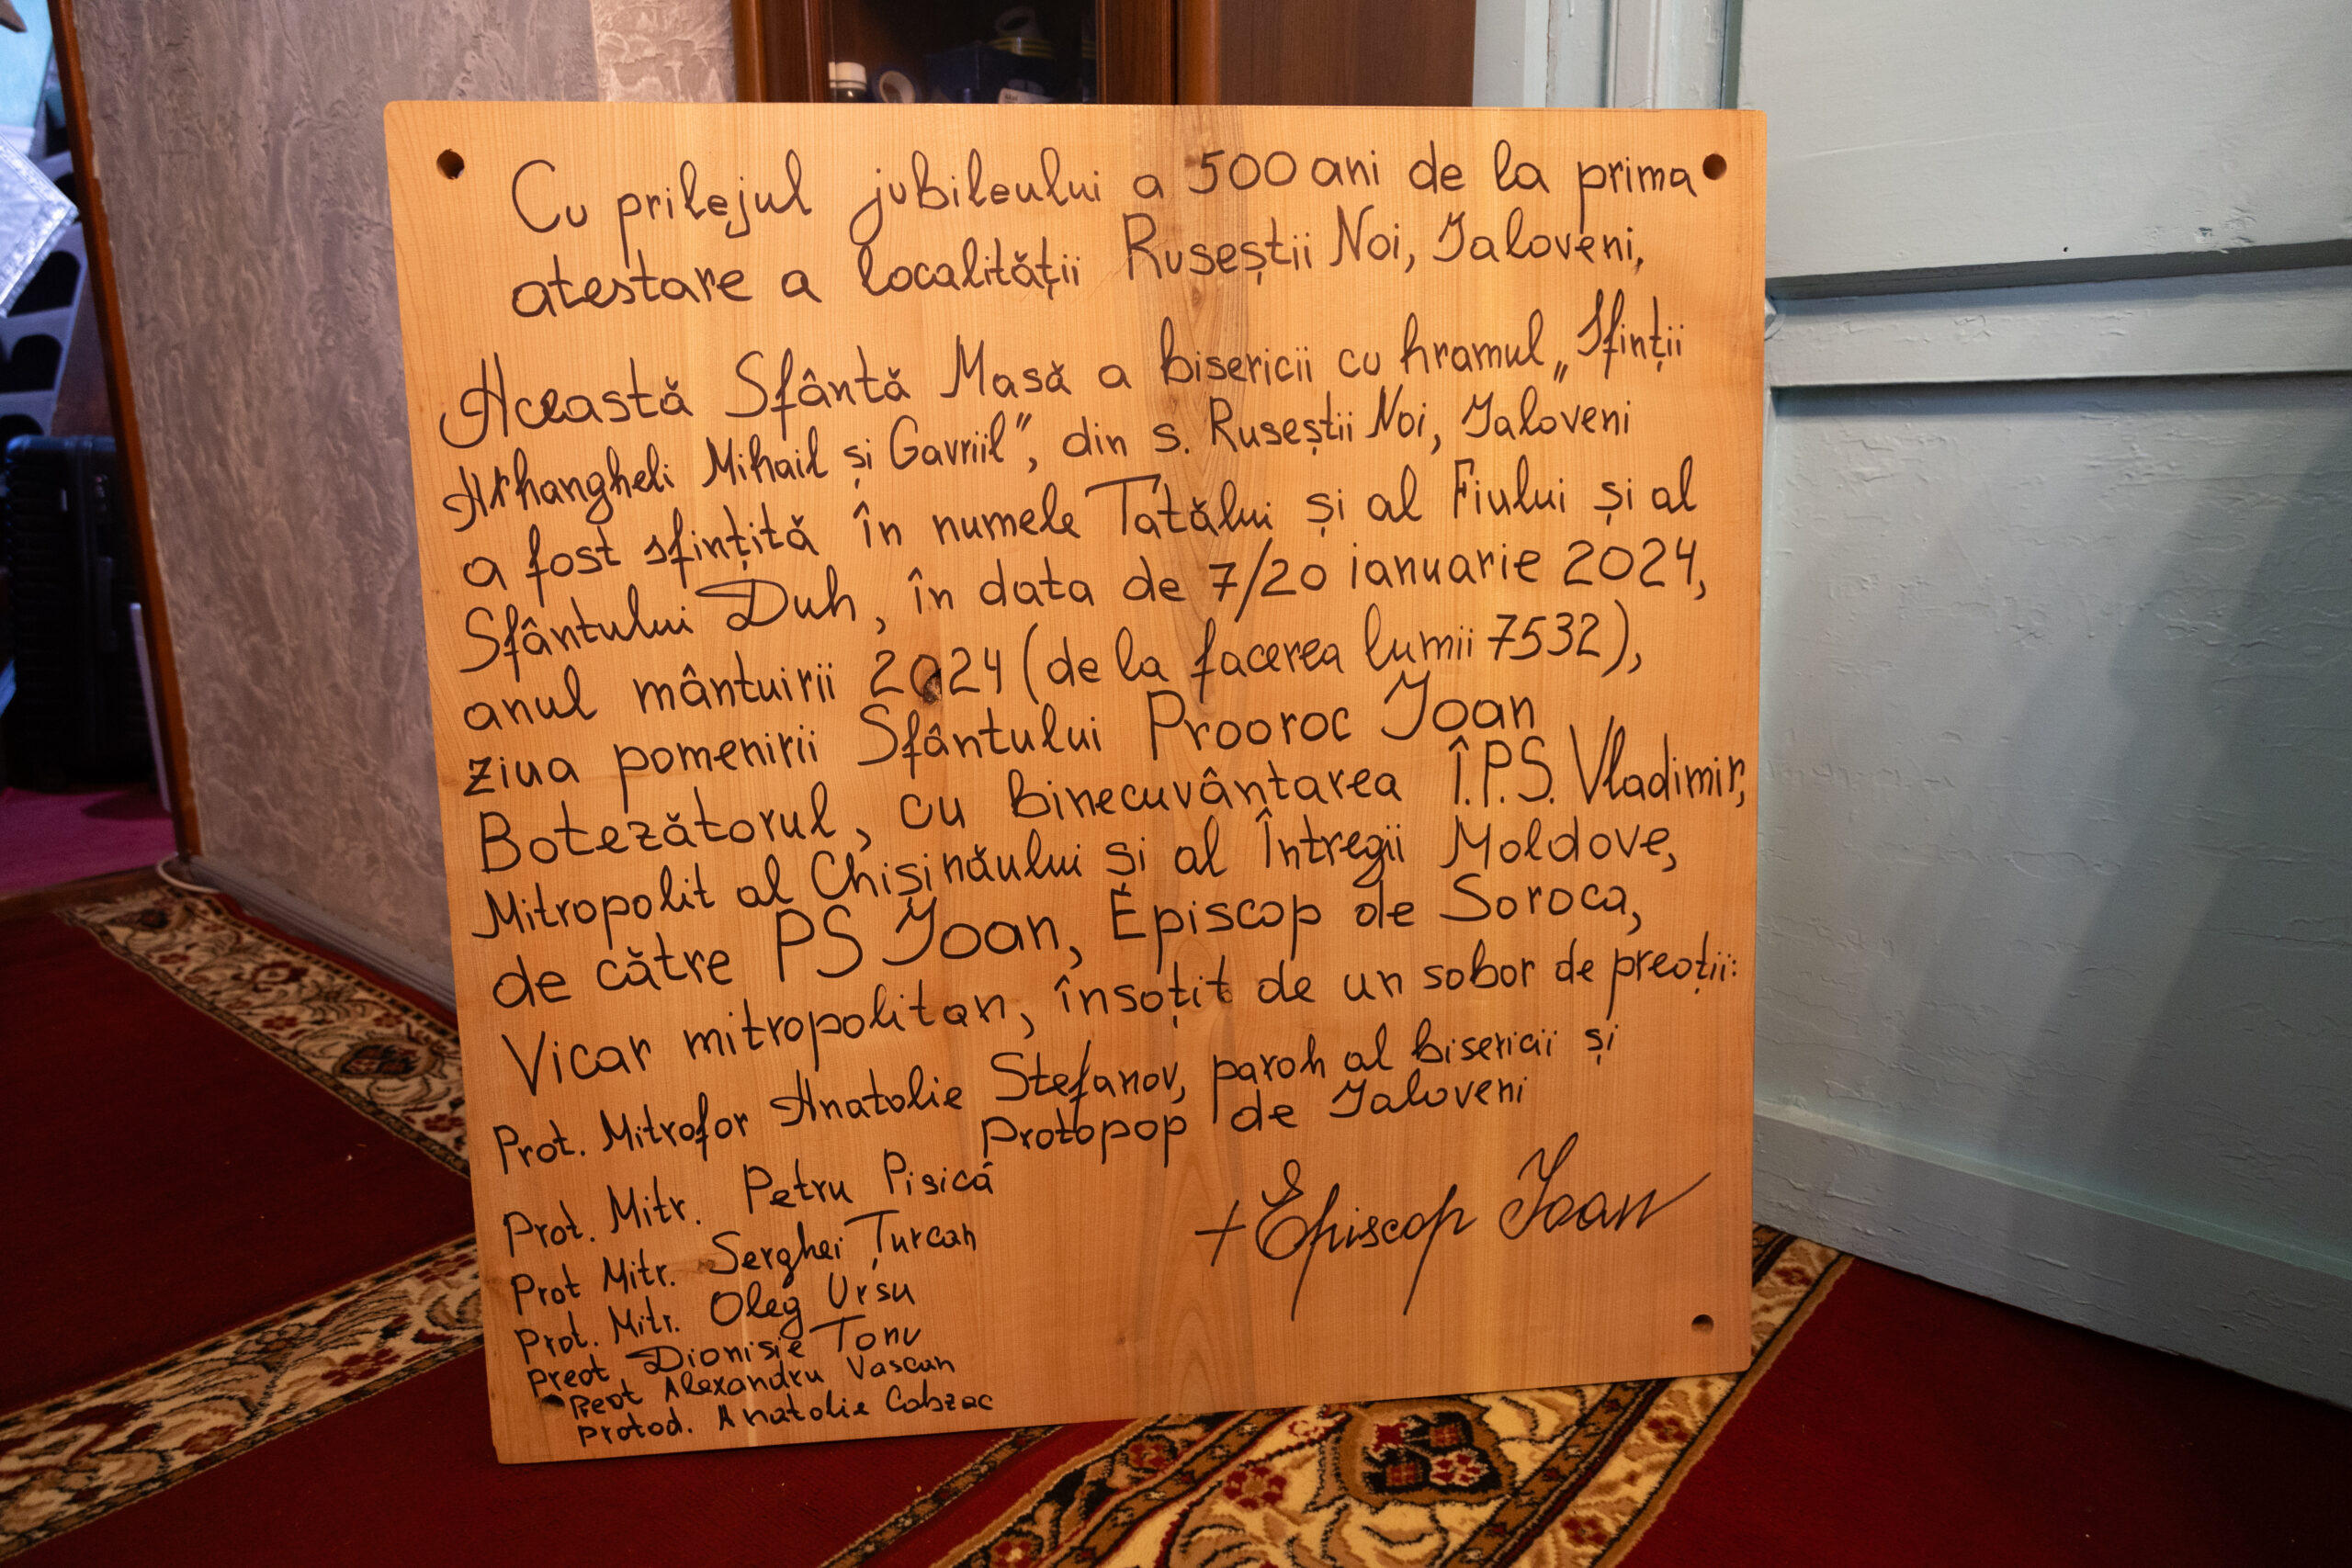 Cu prilejul jubileului a 500 ani de la prima
atestare a localității Ruseștii Noi, Ialoveni,
Această Sfântă Masă a bisericii cu hramul „Sfinții
Arhangheli Mihail și Gavriil”, din s. Ruseștii Noi, Ialoveni
a fost sfințită în numele Tatălui și al Fiului și al
Sfântului Duh, în data de 7/20 ianuarie 2024,
anul mântuirii 2024 (de la facerea lumii 7532),
ziua pomenirii Sfântului Prooroc Ioan
Botezătorul, cu binecuvântarea Î.P.S. Vladimir,
Mitropolit al Chișinăului și al Întregii Moldove,
de către PS Ioan, Episcop de Soroca,
Vicar mitropolitan, însoțit de un sobor de preoții:
Prot. Mitrofor Anatolie Stefanov, paroh al bisericii și
Protopop de Ialoveni
Prot. Mitr. Petru Pisică
Prot Mitr. Serghei Țurcan
Prot. Mitr. Oleg Ursu
Preot Dionisie Tonu
Peot Alexandru Vascan
Protod. Anatolie Cobzac
+ Episcop Ioan